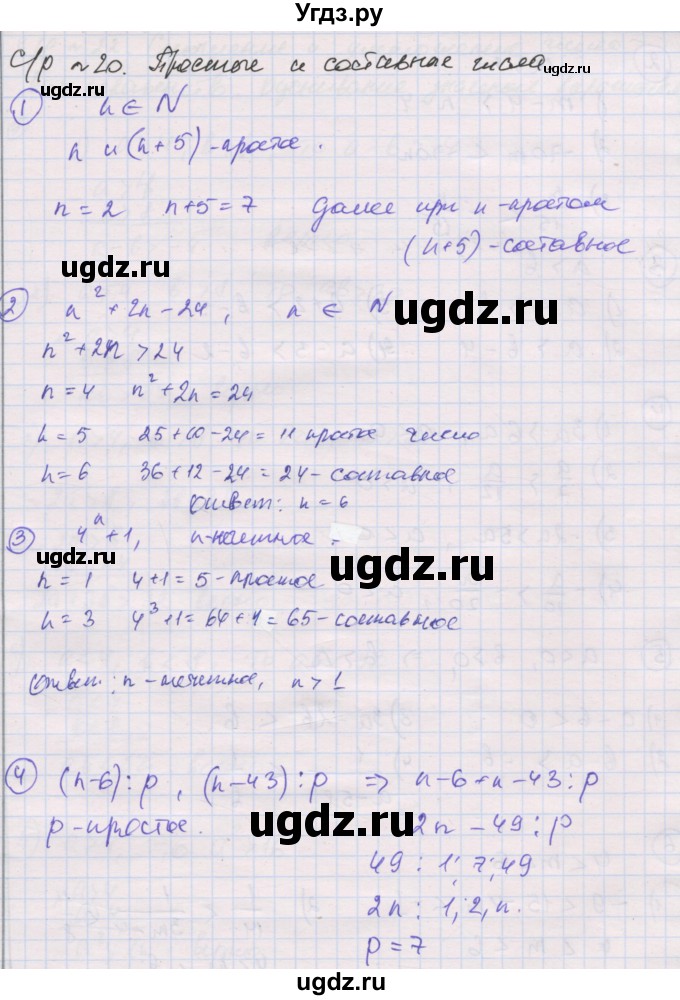 Угдз.ру
С/р №20. Простые и составные числа
① n ∈ N
n и (n+5) - простое.
n = 2 n+5 = 7 Далее при n - простом
(n+5) - составное
② n² + 2n - 24, n ∈ N
n² + 2n > 24
n = 4 n² + 2n = 24
n = 5 25+10-24 = 11 простое число
n = 6 36+12-24 = 24 - составное
Ответ: n = 6
③ 4ⁿ+1, n-нечетное.
n = 1 4+1 = 5 - простое
n = 3 4³+1 = 64+1 = 65 - составное
Ответ: n - нечетное, n > 1
④ (n-6) : p, (n-43) : p ⇒ n-6+n-43 : p
p - простое. 2n - 49 : p
49 : 1; 7; 49
2n : 1; 2, n.
p = 7
ugdz.ru
ugdz.ru
ugdz.ru
ugdz.ru
ugdz.ru
ugdz.ru
ugdz.ru
ugdz.ru
Угдз.ру